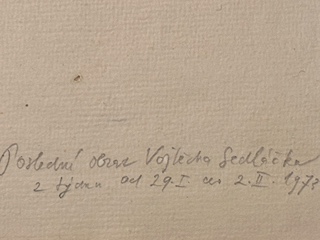 Poslední obraz Vojtěcha Sedláčka
z týdne od 29.I do 2.II. 1973